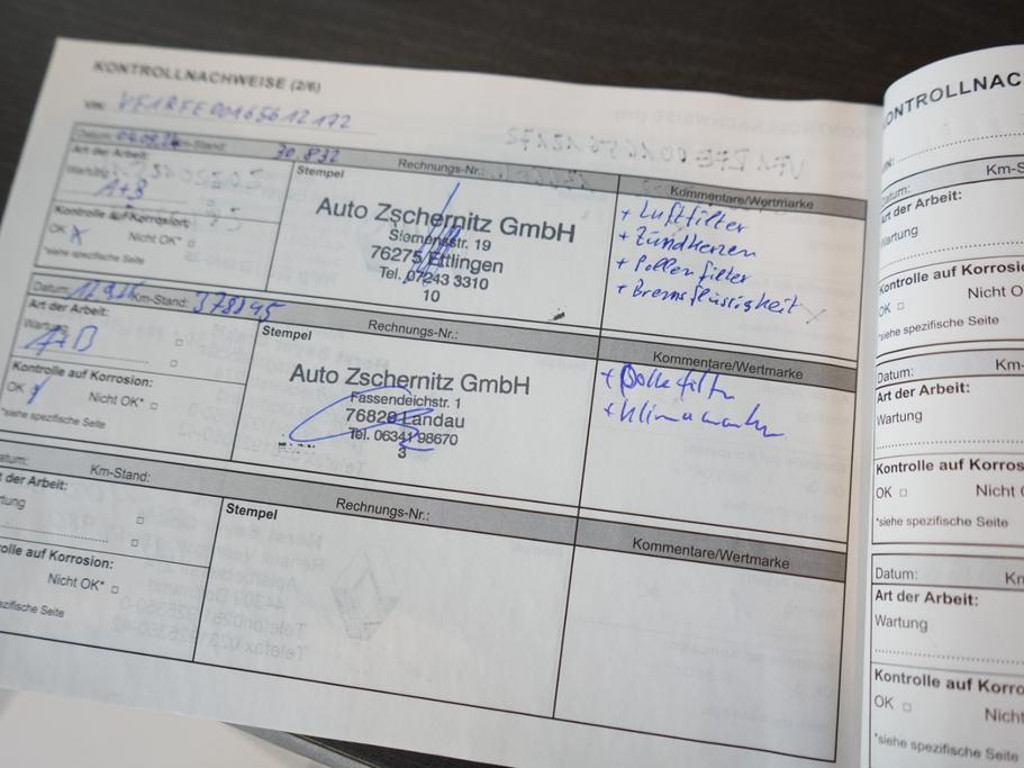 KONTROLLNACHWEISE (2/6)
VIN: VF1RFE00165612172
Datum: Km-Stand: 30 832 Rechnungs-Nr.:
Art der Arbeit:
Wartung
A+B
Kontrolle auf Korrosion:
OK X Nicht OK*
*siehe spezifische Seite
Stempel
Auto Zschernitz GmbH
Siemensstr. 19
76275 Ettlingen
Tel. 07243 3310
10
Kommentare/Wertmarke
+ Luftfilter
+ Zündkerzen
+ Pollenfilter
+ Bremsflüssigkeit
Datum: Km-Stand: 378945 Rechnungs-Nr.:
Art der Arbeit:
Wartung
A+B
Kontrolle auf Korrosion:
OK Nicht OK*
*siehe spezifische Seite
Stempel
Auto Zschernitz GmbH
Fassendeichstr. 1
76829 Landau
Tel. 06341 98670
3
Kommentare/Wertmarke
+ Pollefilter
+
atum: Km-Stand: Rechnungs-Nr.:
t der Arbeit:
tung
olle auf Korrosion:
Nicht OK*
ezifische Seite
Stempel
Kommentare/Wertmarke
ONTROLLNAC
atum: Km-S
Art der Arbeit:
Wartung
Kontrolle auf Korrosio
OK Nicht O
*siehe spezifische Seite
Datum: Km-
Art der Arbeit:
Wartung
Kontrolle auf Korros
OK Nicht
*siehe spezifische Seite
Datum: Km
Art der Arbeit:
Wartung
Kontrolle auf Korro
OK Nicht
*siehe spezifische Seite